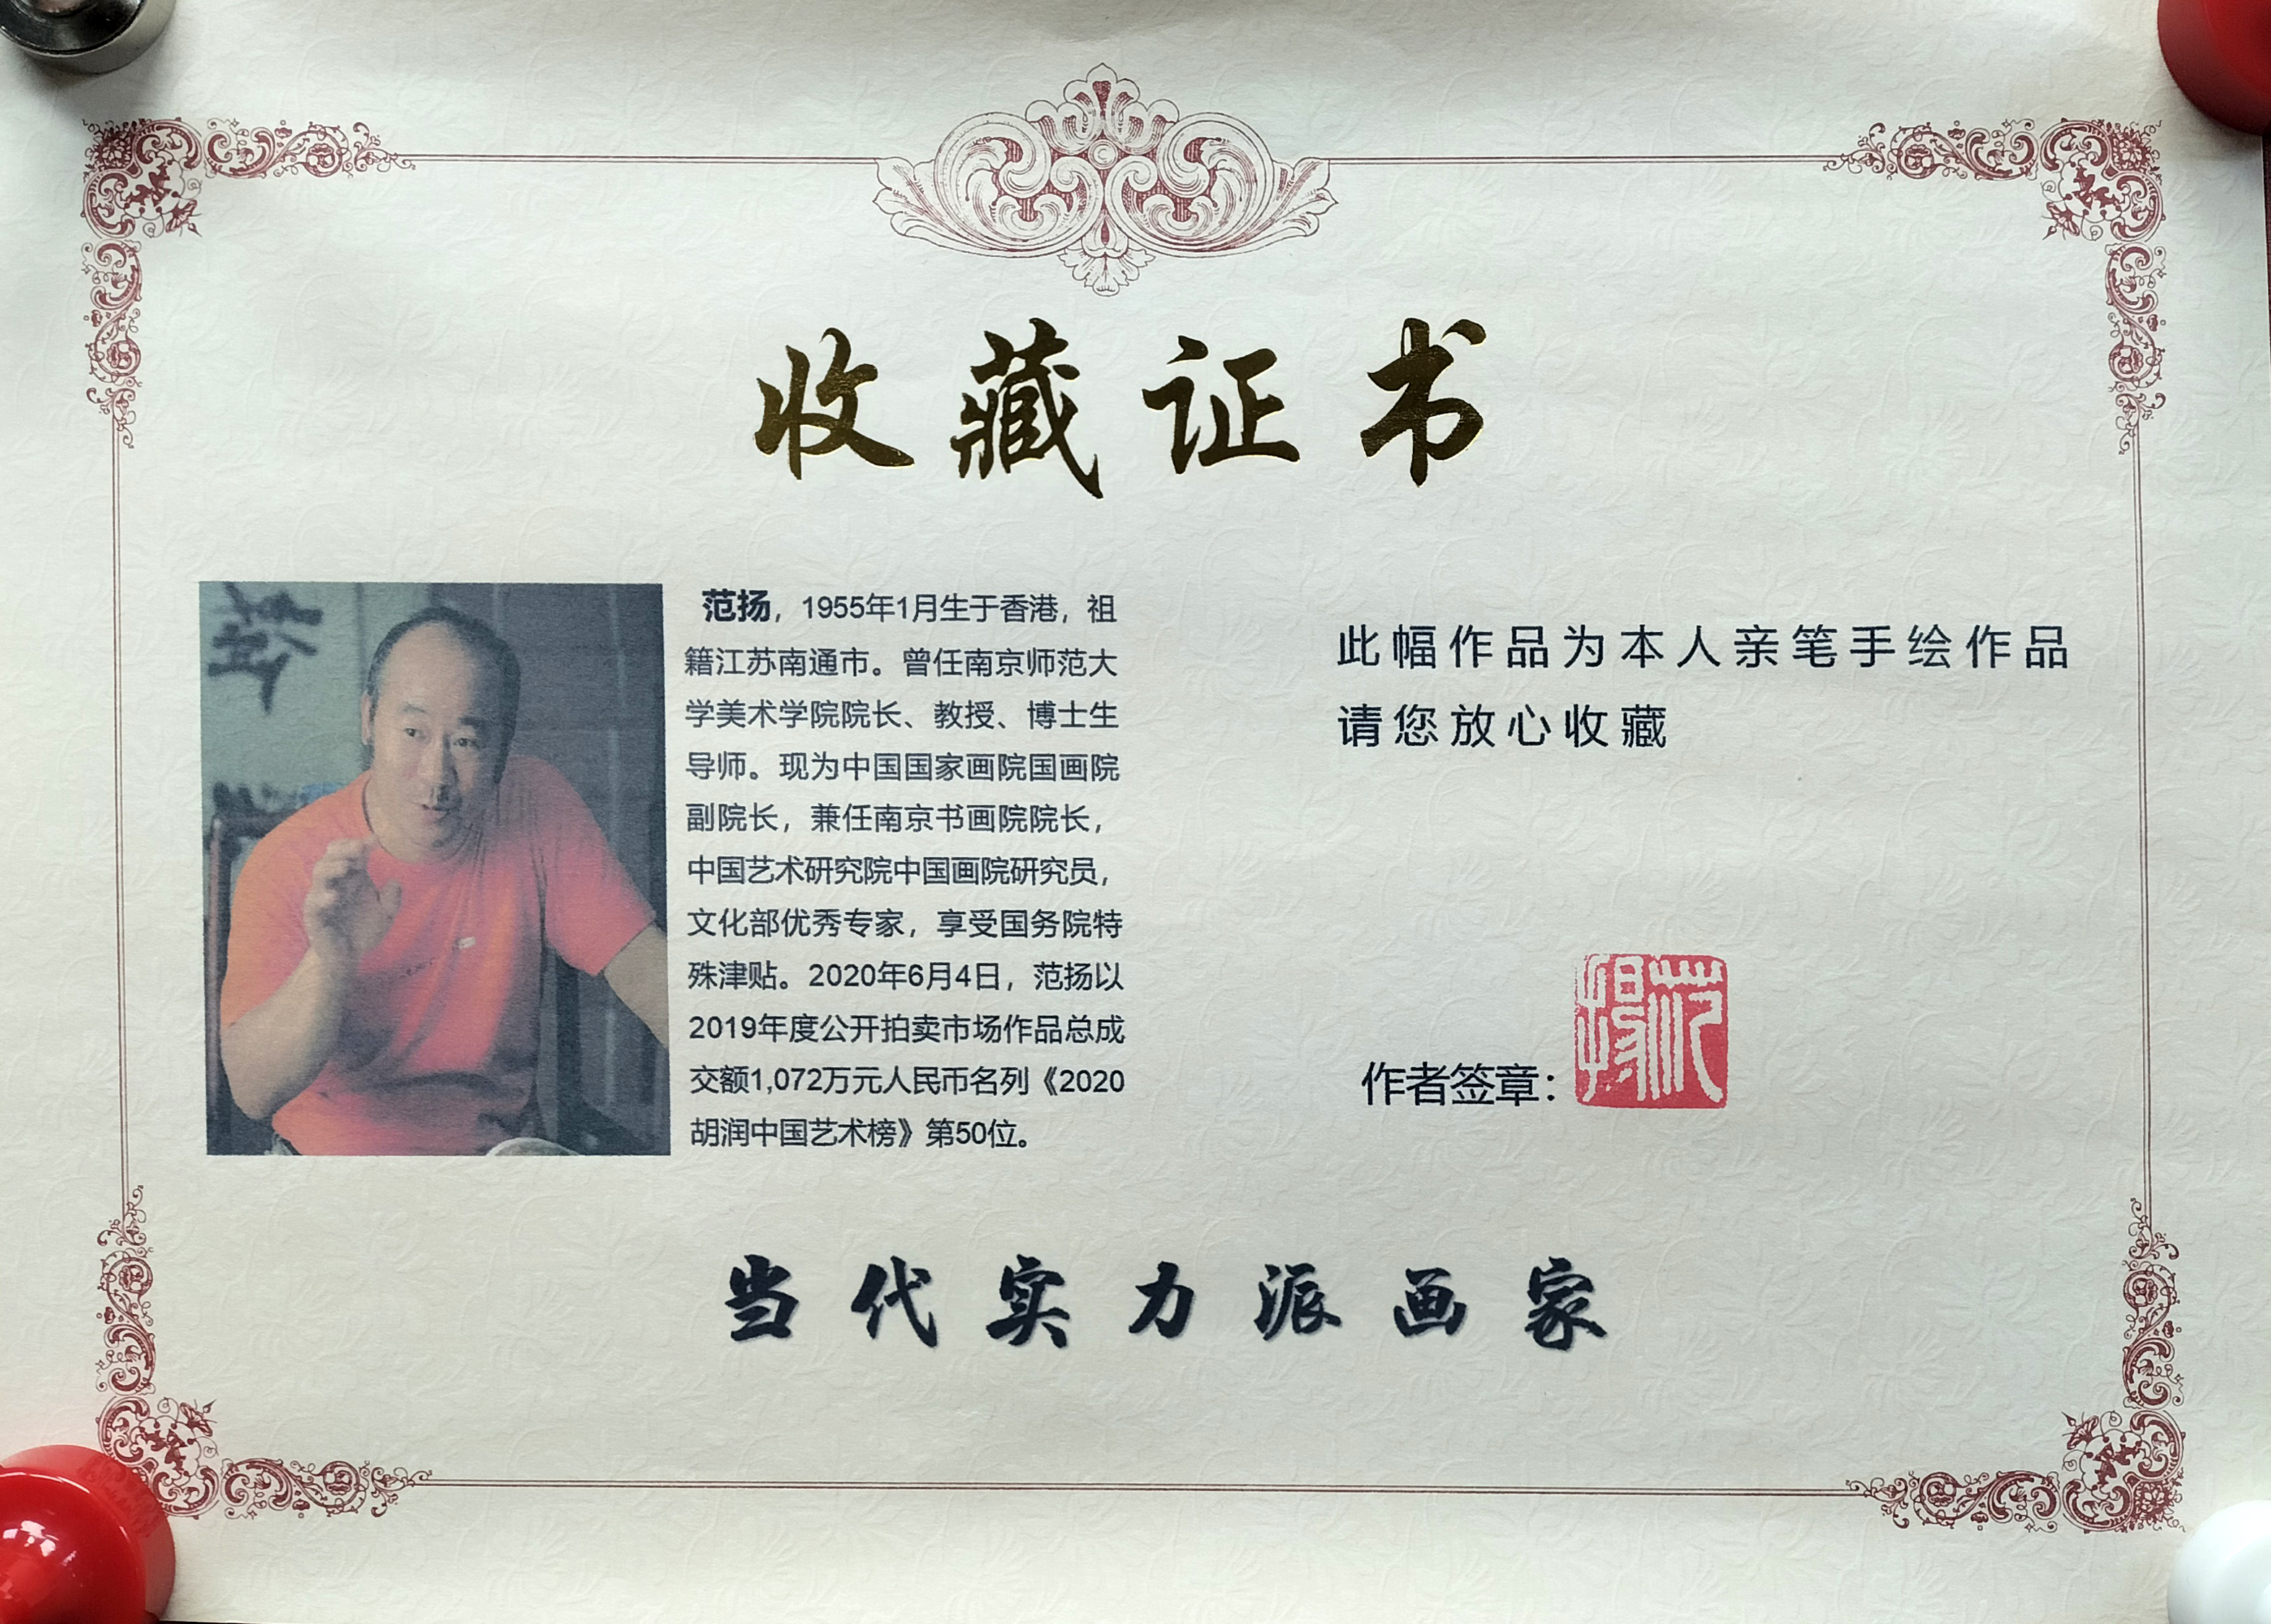 收藏证书
范扬，1955年1月生于香港，祖
籍江苏南通市。曾任南京师范大
学美术学院院长、教授、博士生
导师。现为中国国家画院国画院
副院长，兼任南京书画院院长，
中国艺术研究院中国画院研究员，
文化部优秀专家，享受国务院特
殊津贴。2020年6月4日，范扬以
2019年度公开拍卖市场作品总成
交额1,072万元人民币名列《2020
胡润中国艺术榜》第50位。
此幅作品为本人亲笔手绘作品
请您放心收藏
作者签章：
范揚
当代实力派画家